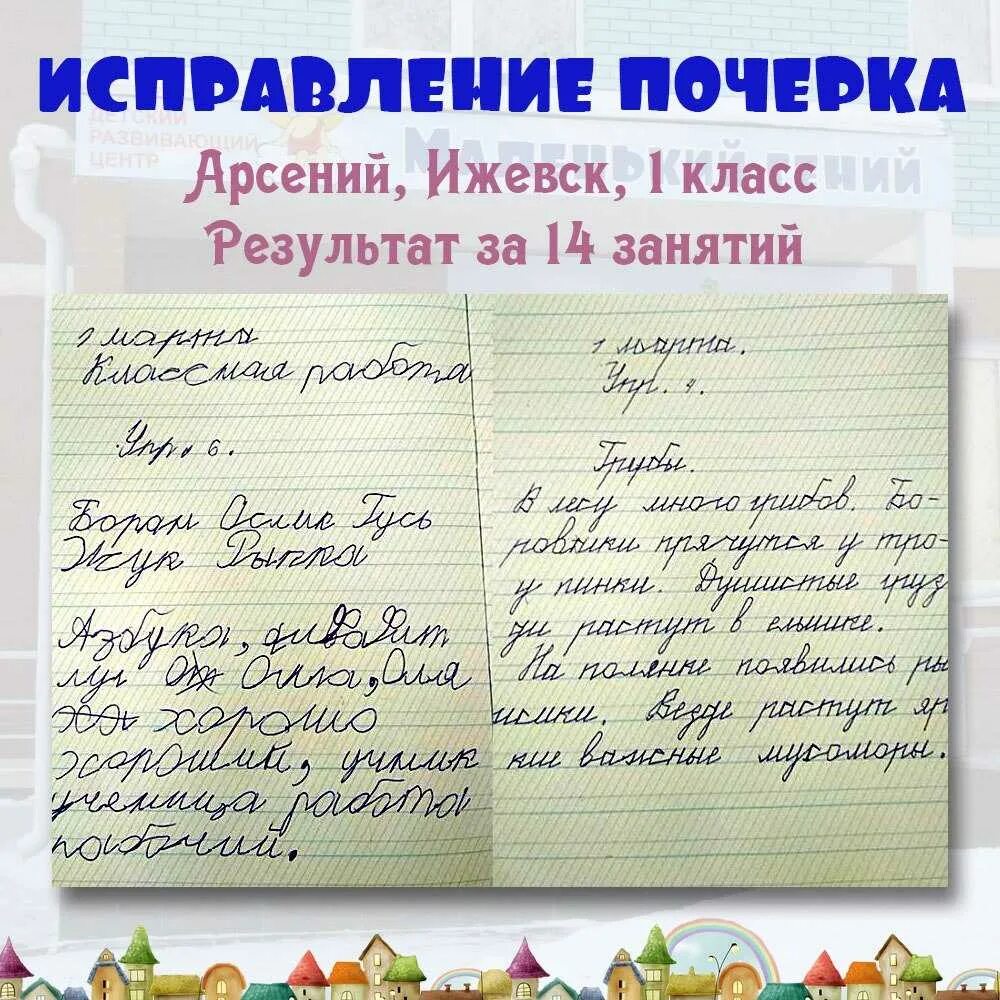 ИСПРАВЛЕНИЕ ПОЧЕРКА
ДЕТСКИЙ
РАЗВИВАЮЩИЙ
ЦЕНТР
Маленький гений
Арсений, Ижевск, 1 класс
Результат за 14 занятий
1 марта
Классная работа
Упр. 6.
Боран Ослик Гусь
Жук Рыпка
Азбука,
луг Олла, Оля
хорошо
хороший, учиник
ученица работа
рабочий.
1 марта.
Упр. 4.
Грибы.
В лесу много грибов. Бо-
ровики прячутся у тро-
у пинки. Душистые груз
ди растут в ельнике.
На полянке появились ры
жики. Везде растут яр
кие важные мухоморы.